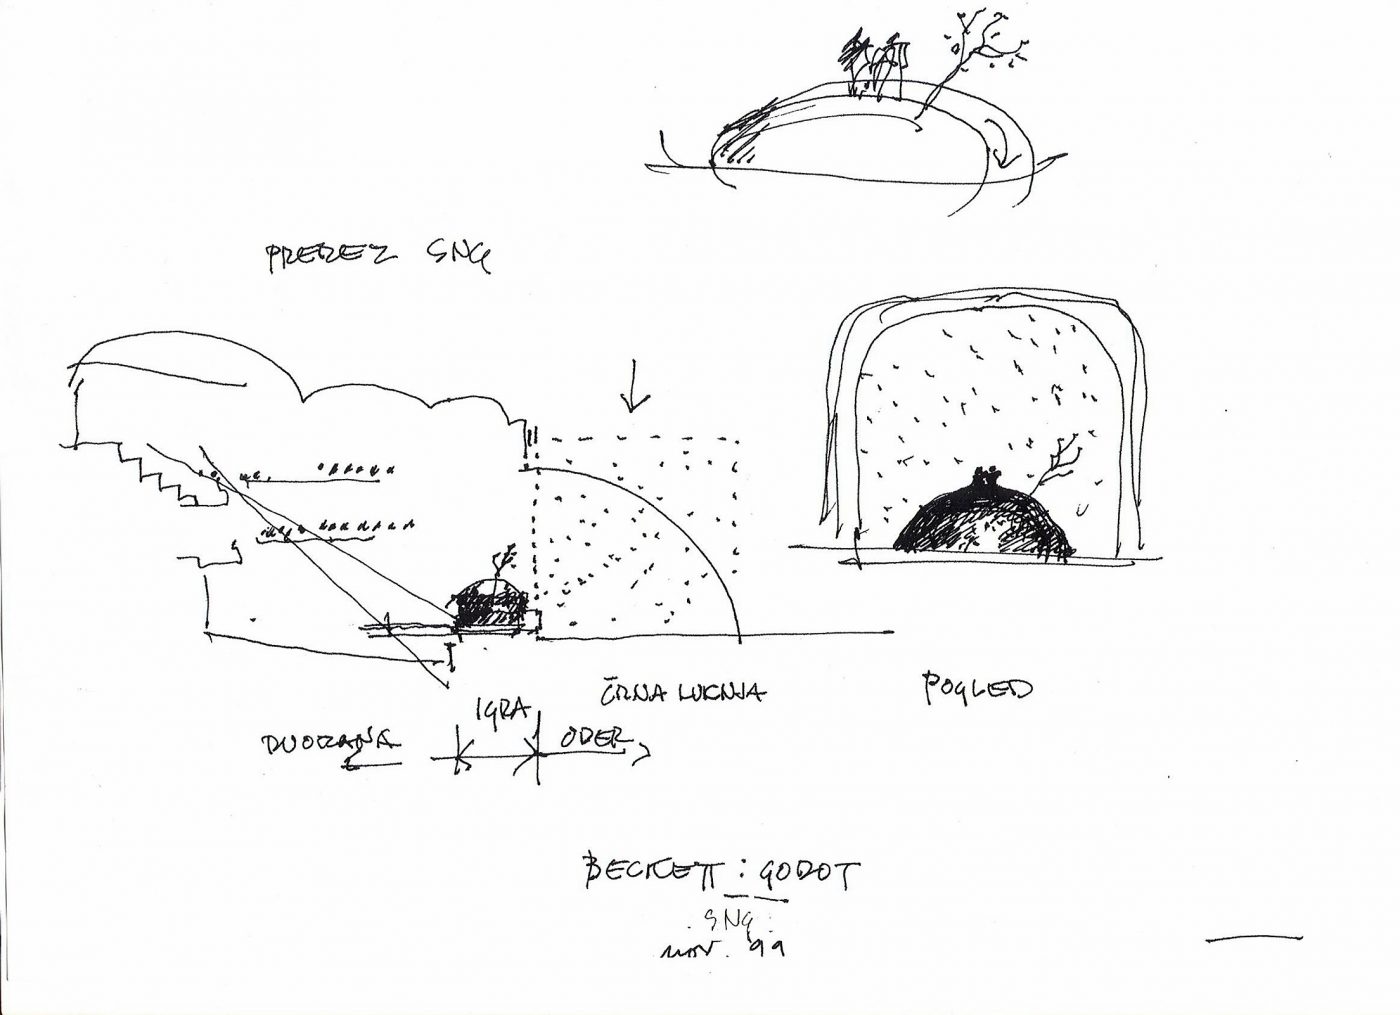 PREREZ SNG
ČRNA LUKNJA
POGLED
IGRA
DVORANA
ODER
BECKETT : GODOT
SNG
nov. 99